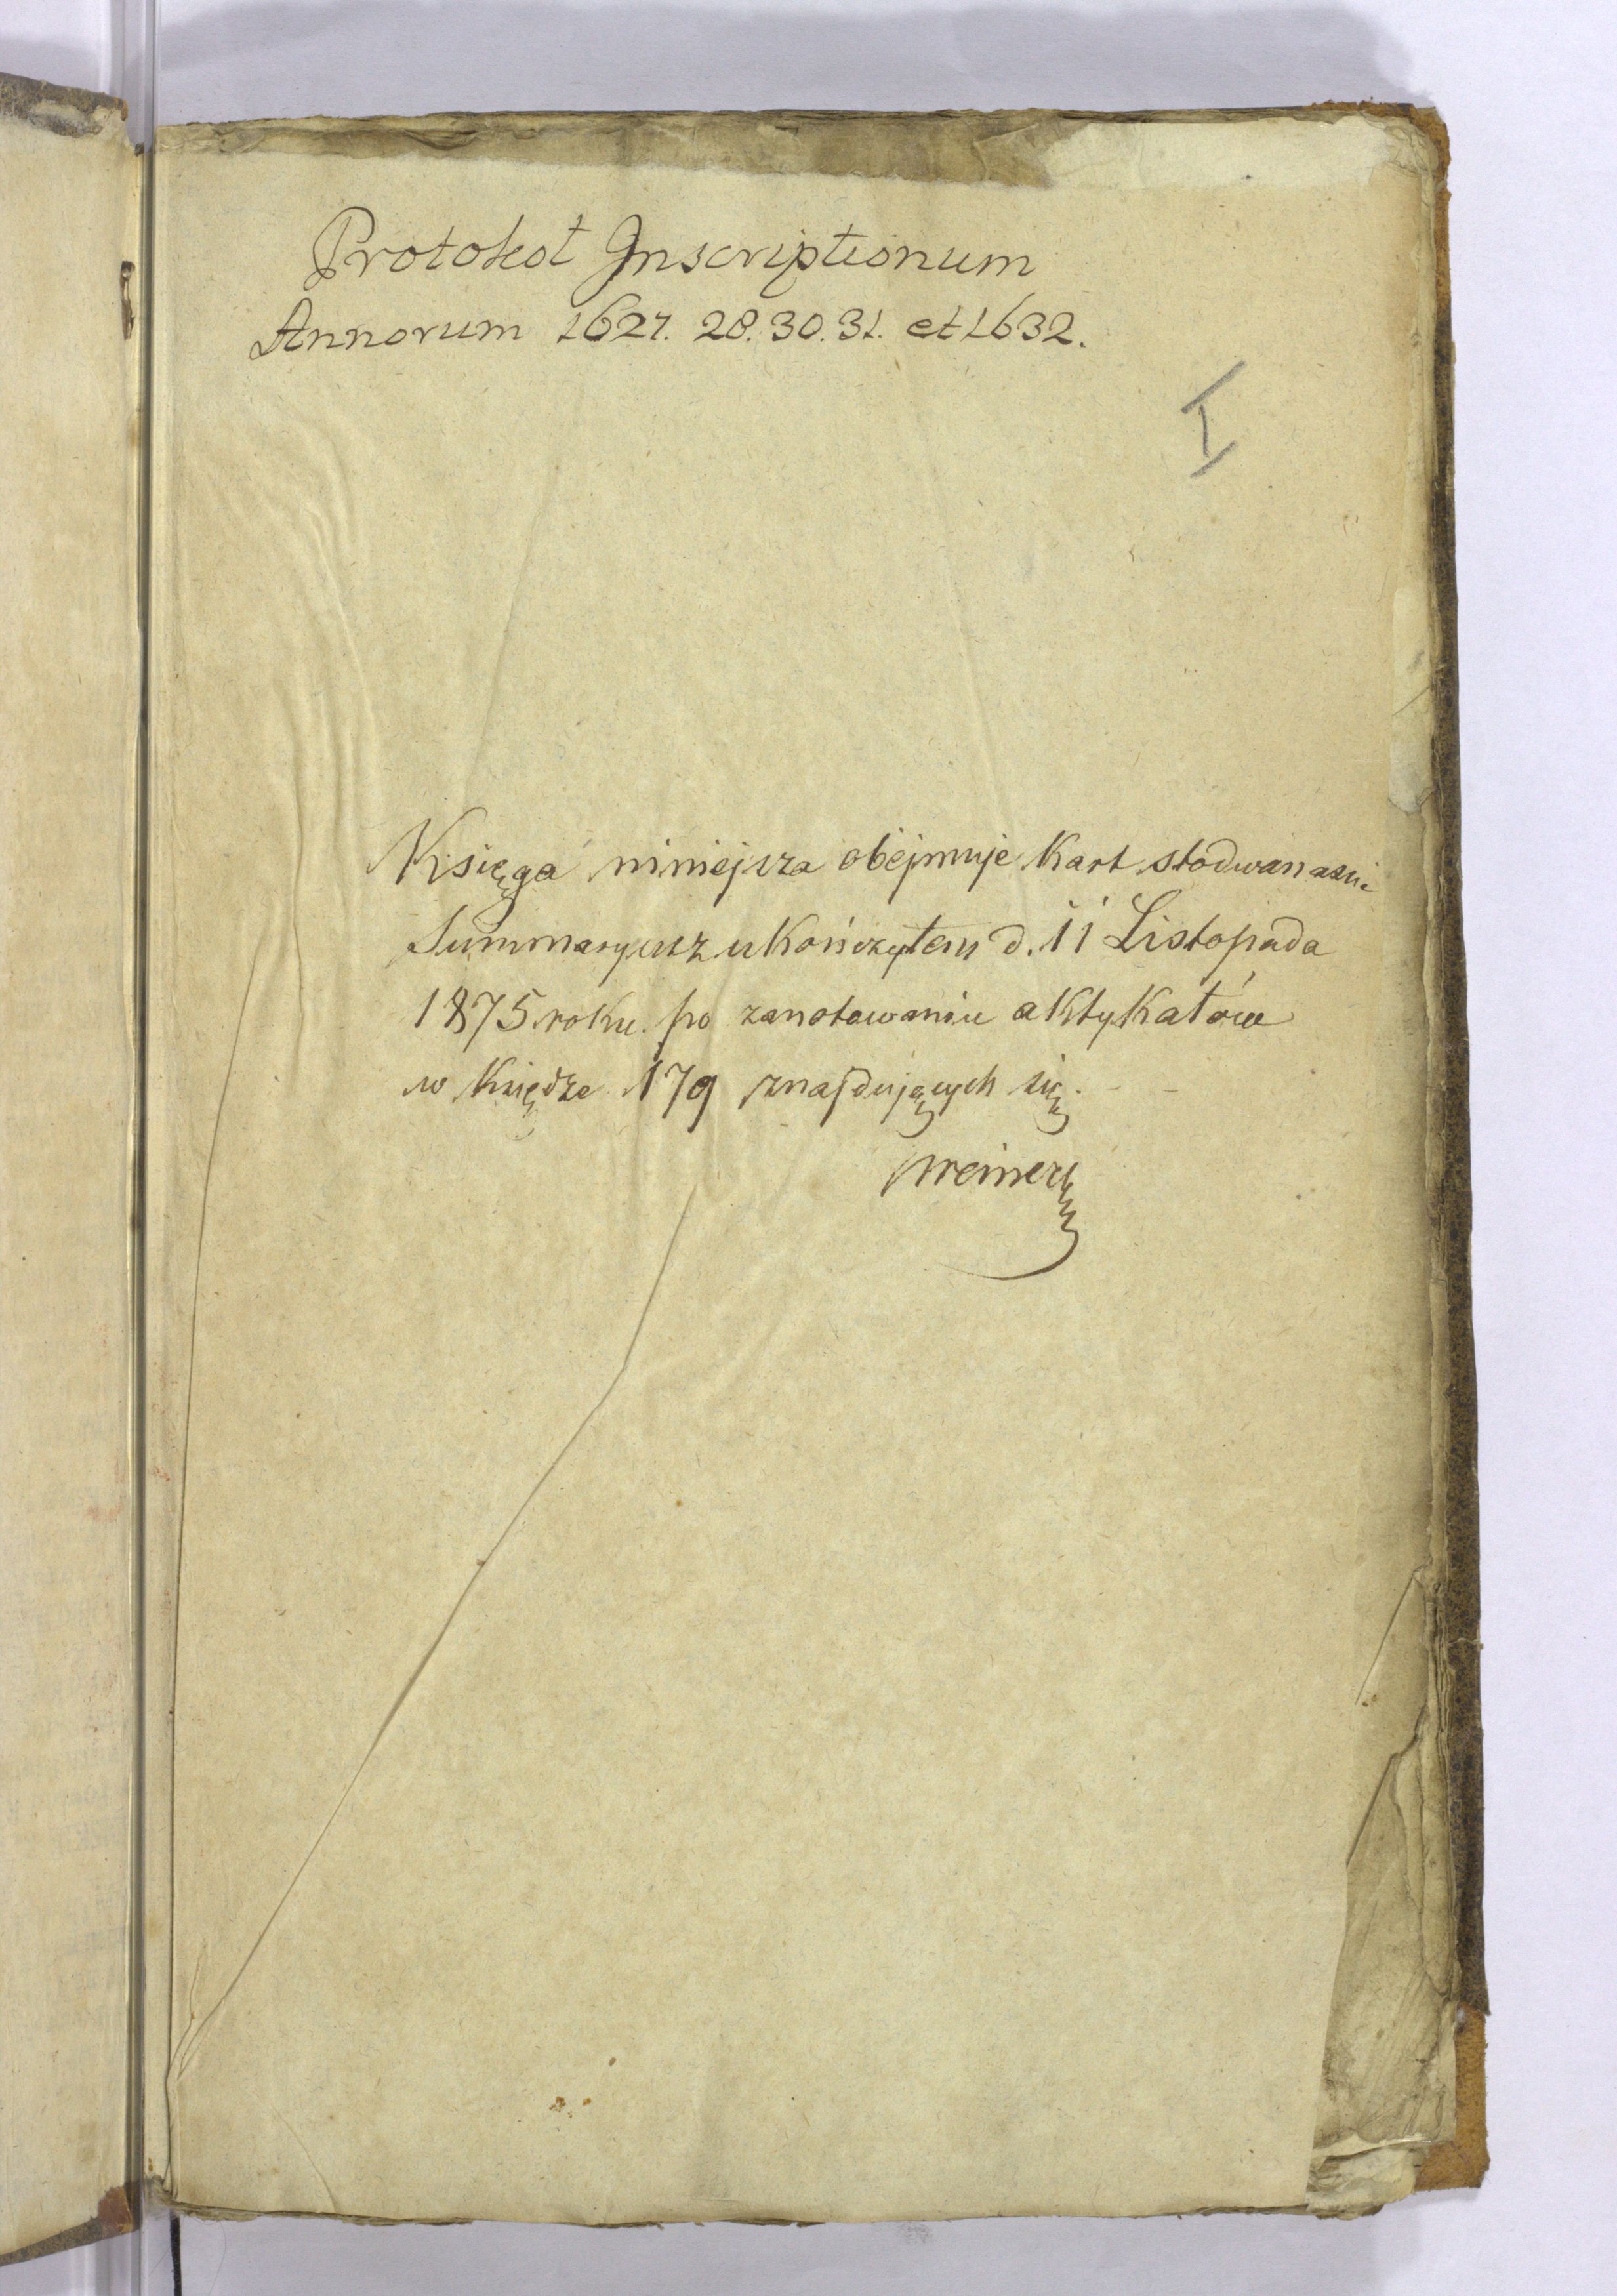 Protokoł Inscriptionum
Annorum 1627. 28. 30. 31. et 1632.
I
Księga niniejsza obejmuje Kart
Summaryusz ukończyłem d. 11 Listopada
1875 roku po zanotowaniu aktykatów
w Księdze 179 znajdujących się.